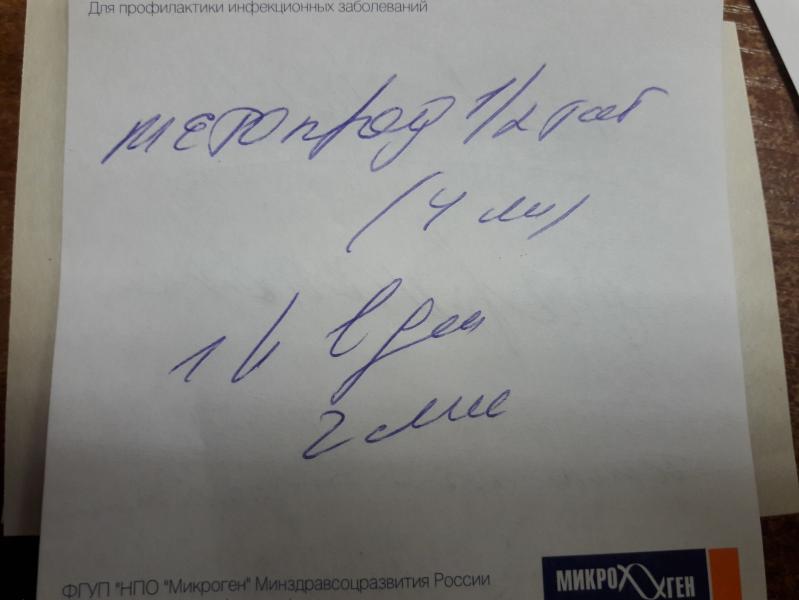 Для профилактики инфекционных заболеваний
метопрод 1/2 таб
(4 мг)
1 р в день
2 мес
ФГУП "НПО "Микроген" Минздравсоцразвития России
МИКРОГЕН